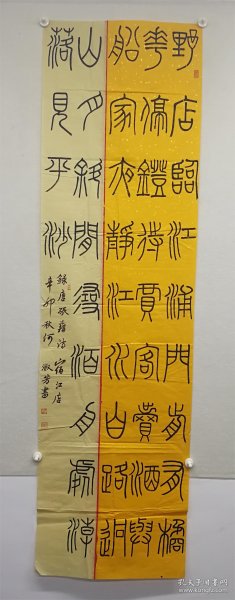 野店臨江浦門前有橘
花停鐙待賈客賣酒與
船家夜靜江水白路迴
山月斜閒尋泊舟處潮
落見平沙
錄唐張籍詩宿江店
辛卯秋何淑芳書